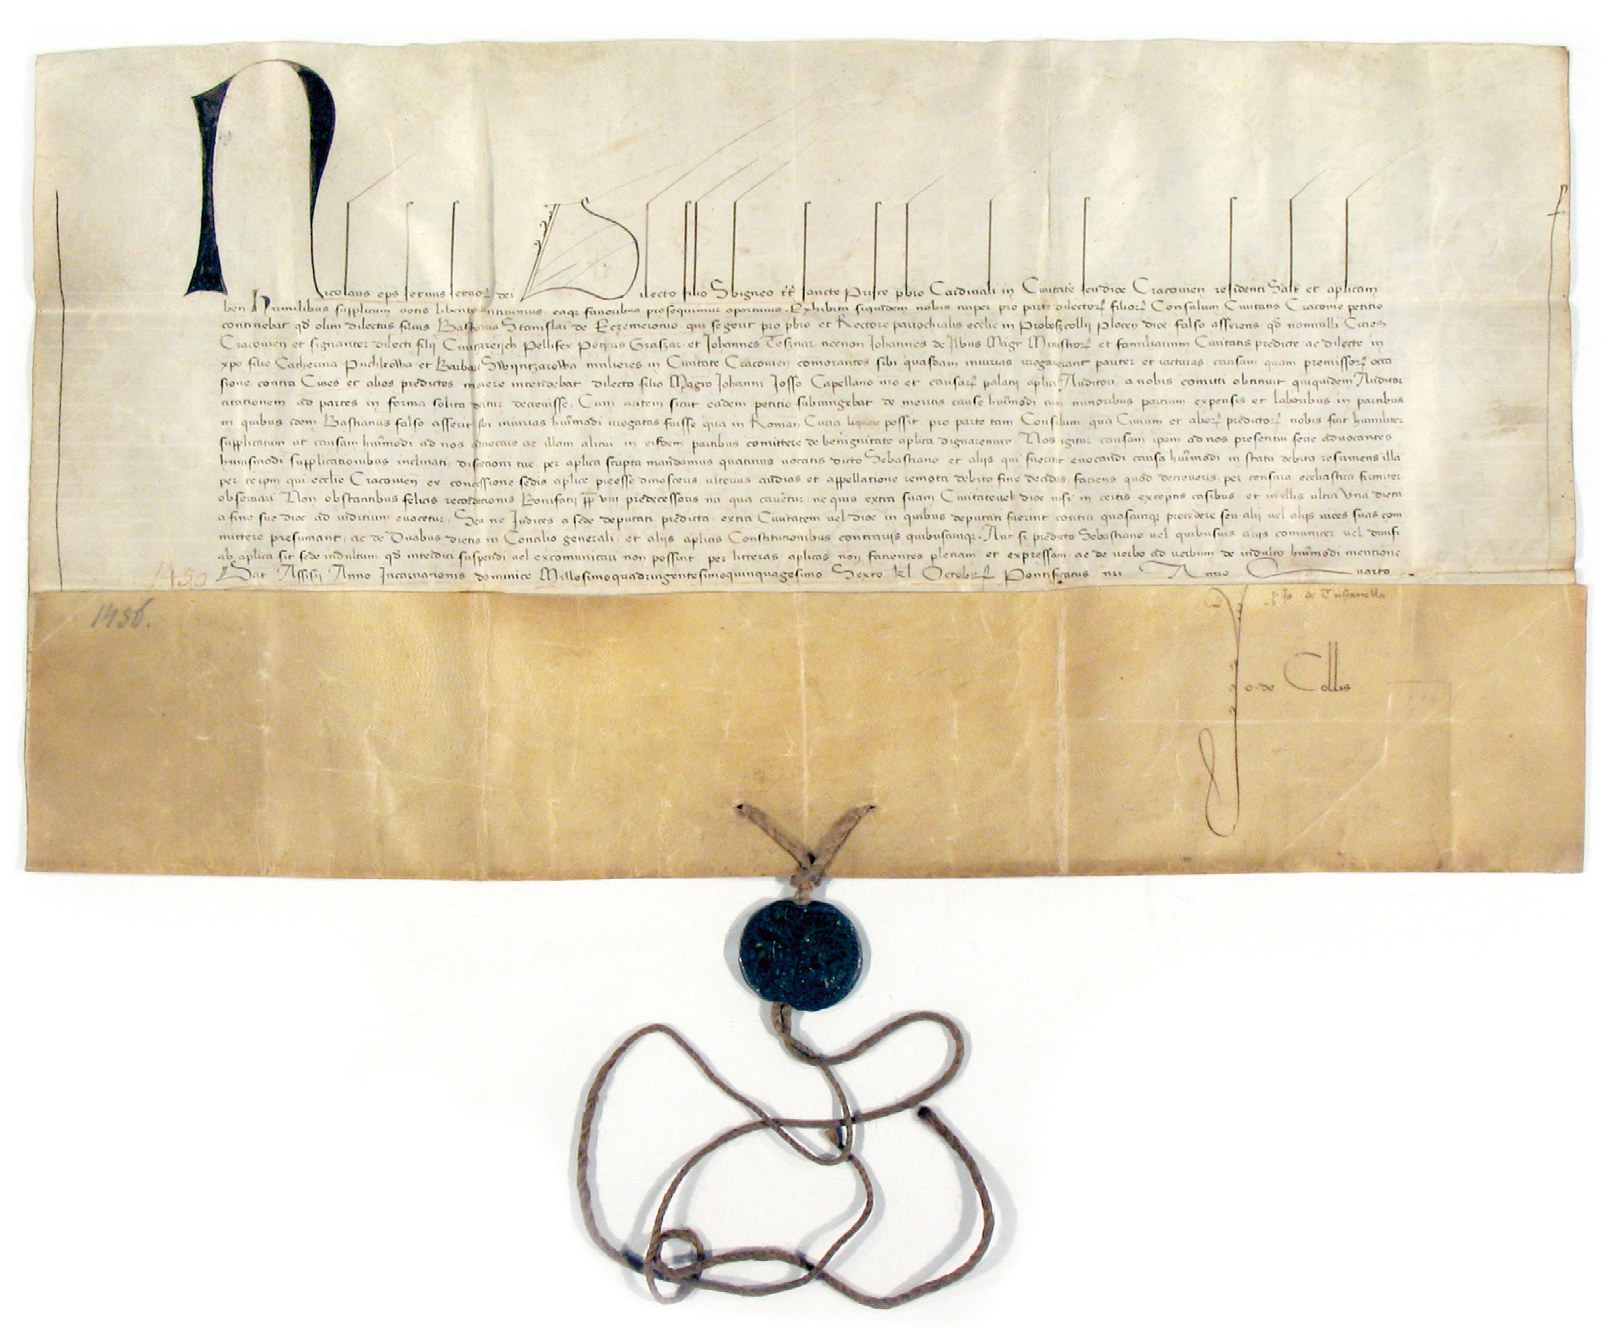 Nicolaus eps servus servoꝝ dei Dilecto filio Sbigneo tt Sancte Prisce pbro Cardinali in Civitate seu dioc Cracovien residenti Salt et aplicam
ben Humilibus supplicum votis libenter annuimus eaqꝫ favoribus prosequimur oportunis. Exhibita siquidem nobis nuper pro parte dilectoꝝ filioꝝ Consulum Civitatis Cracovie petitio
continebat qd olim dilectus filius Stanislai de qui se gerit pro pbro et Rectore parochialis ecclie in Plocen dioc falso asserens qd nonnulli Cives
Cracovien et signanter dilecti filij Pellifex Petrus Graszar et Iohannes Tesznar necnon Iohannes de Magr Ministroꝝ et familiarium Civitatis predicte ac dilecte in
xpo filie Catherina Puchlrowa et Barbara mulieres in Civitate Cracovien comorantes sibi quasdam iniurias irrogarant pariter et iacturas causam quam premissoꝝ occa
sione contra Cives et alios predictos movere intendebat dilecto filio Magro Iohanni Iosso Capellano nro et causaꝝ palatii aplici Auditori a nobis comitti obtinuit quiquidem Auditor
citationem ad partes in forma solita dicitur decrevisse. Cum autem sicut eadem petitio subiungebat de meritis cause huiusmodi cum minoribus partium expensis et laboribus in partibus
in quibus idem Bastianus falso asserit sibi iniurias huiusmodi irrogatas fuisse qua in Roman Curia liquere possit pro parte tam Consulum qua Civium et alioꝝ predictoꝝ nobis fuit humiliter
supplicatum ut causam huiusmodi ad nos advocare ac illam alicui in eisdem partibus comittere de benignitate aplica dignaremur. Nos igitur causam ipam ad nos presentiu serie advocantes
huiusmodi supplicationibus inclinati discretioni tue per aplica scripta mandamus quatinus vocatis dicto Sebastiano et alijs qui fuerint evocandi causa huiusmodi in statu debito resumens illa
per te ipm qui ecclie Cracovien ex concessione sedis aplice preesse dinosceris ulterius audias et appellatione remota debito fine decidas, faciens quod decreveris per censura ecclesiastica firmiter
observari. Non obstantibus felicis recordationis Bonifatij pp VIII predecessoris nri qua cavetur, ne quis extra suam Civitatevel dioc nisi in certis exceptis casibus et in illis ultra una dieta
a fine sue dioc ad iuditium evocetur. Seu ne Iudices a sede deputati predicta, extra Civitatem vel dioc in quibus deputati fuerint contra quoscunqꝫ procedere seu alij vel alijs vices suas com
mittere presumant, ac de Duabus dietis in Concilio generali, et alijs aplicis Constitutionibus contrarijs quibuscunqꝫ. Aut si predicto Sebastiano vel quibusvis alijs comuniter vel divisi
ab aplica sit sede indultum qd interdici suspendi vel excomunicari non possint per litteras aplicas non facientes plenam et expressam ac de verbo ad verbum de indulto huiusmodi mentione
Dat Assisij Anno Incarnationis dominice Millesimoquadringentesimoquinquagesimo Sexto kl Octobꝝ Pontificatus nri Anno Quarto
1450
1456.
Io de Tuscanella
Io. de Collis